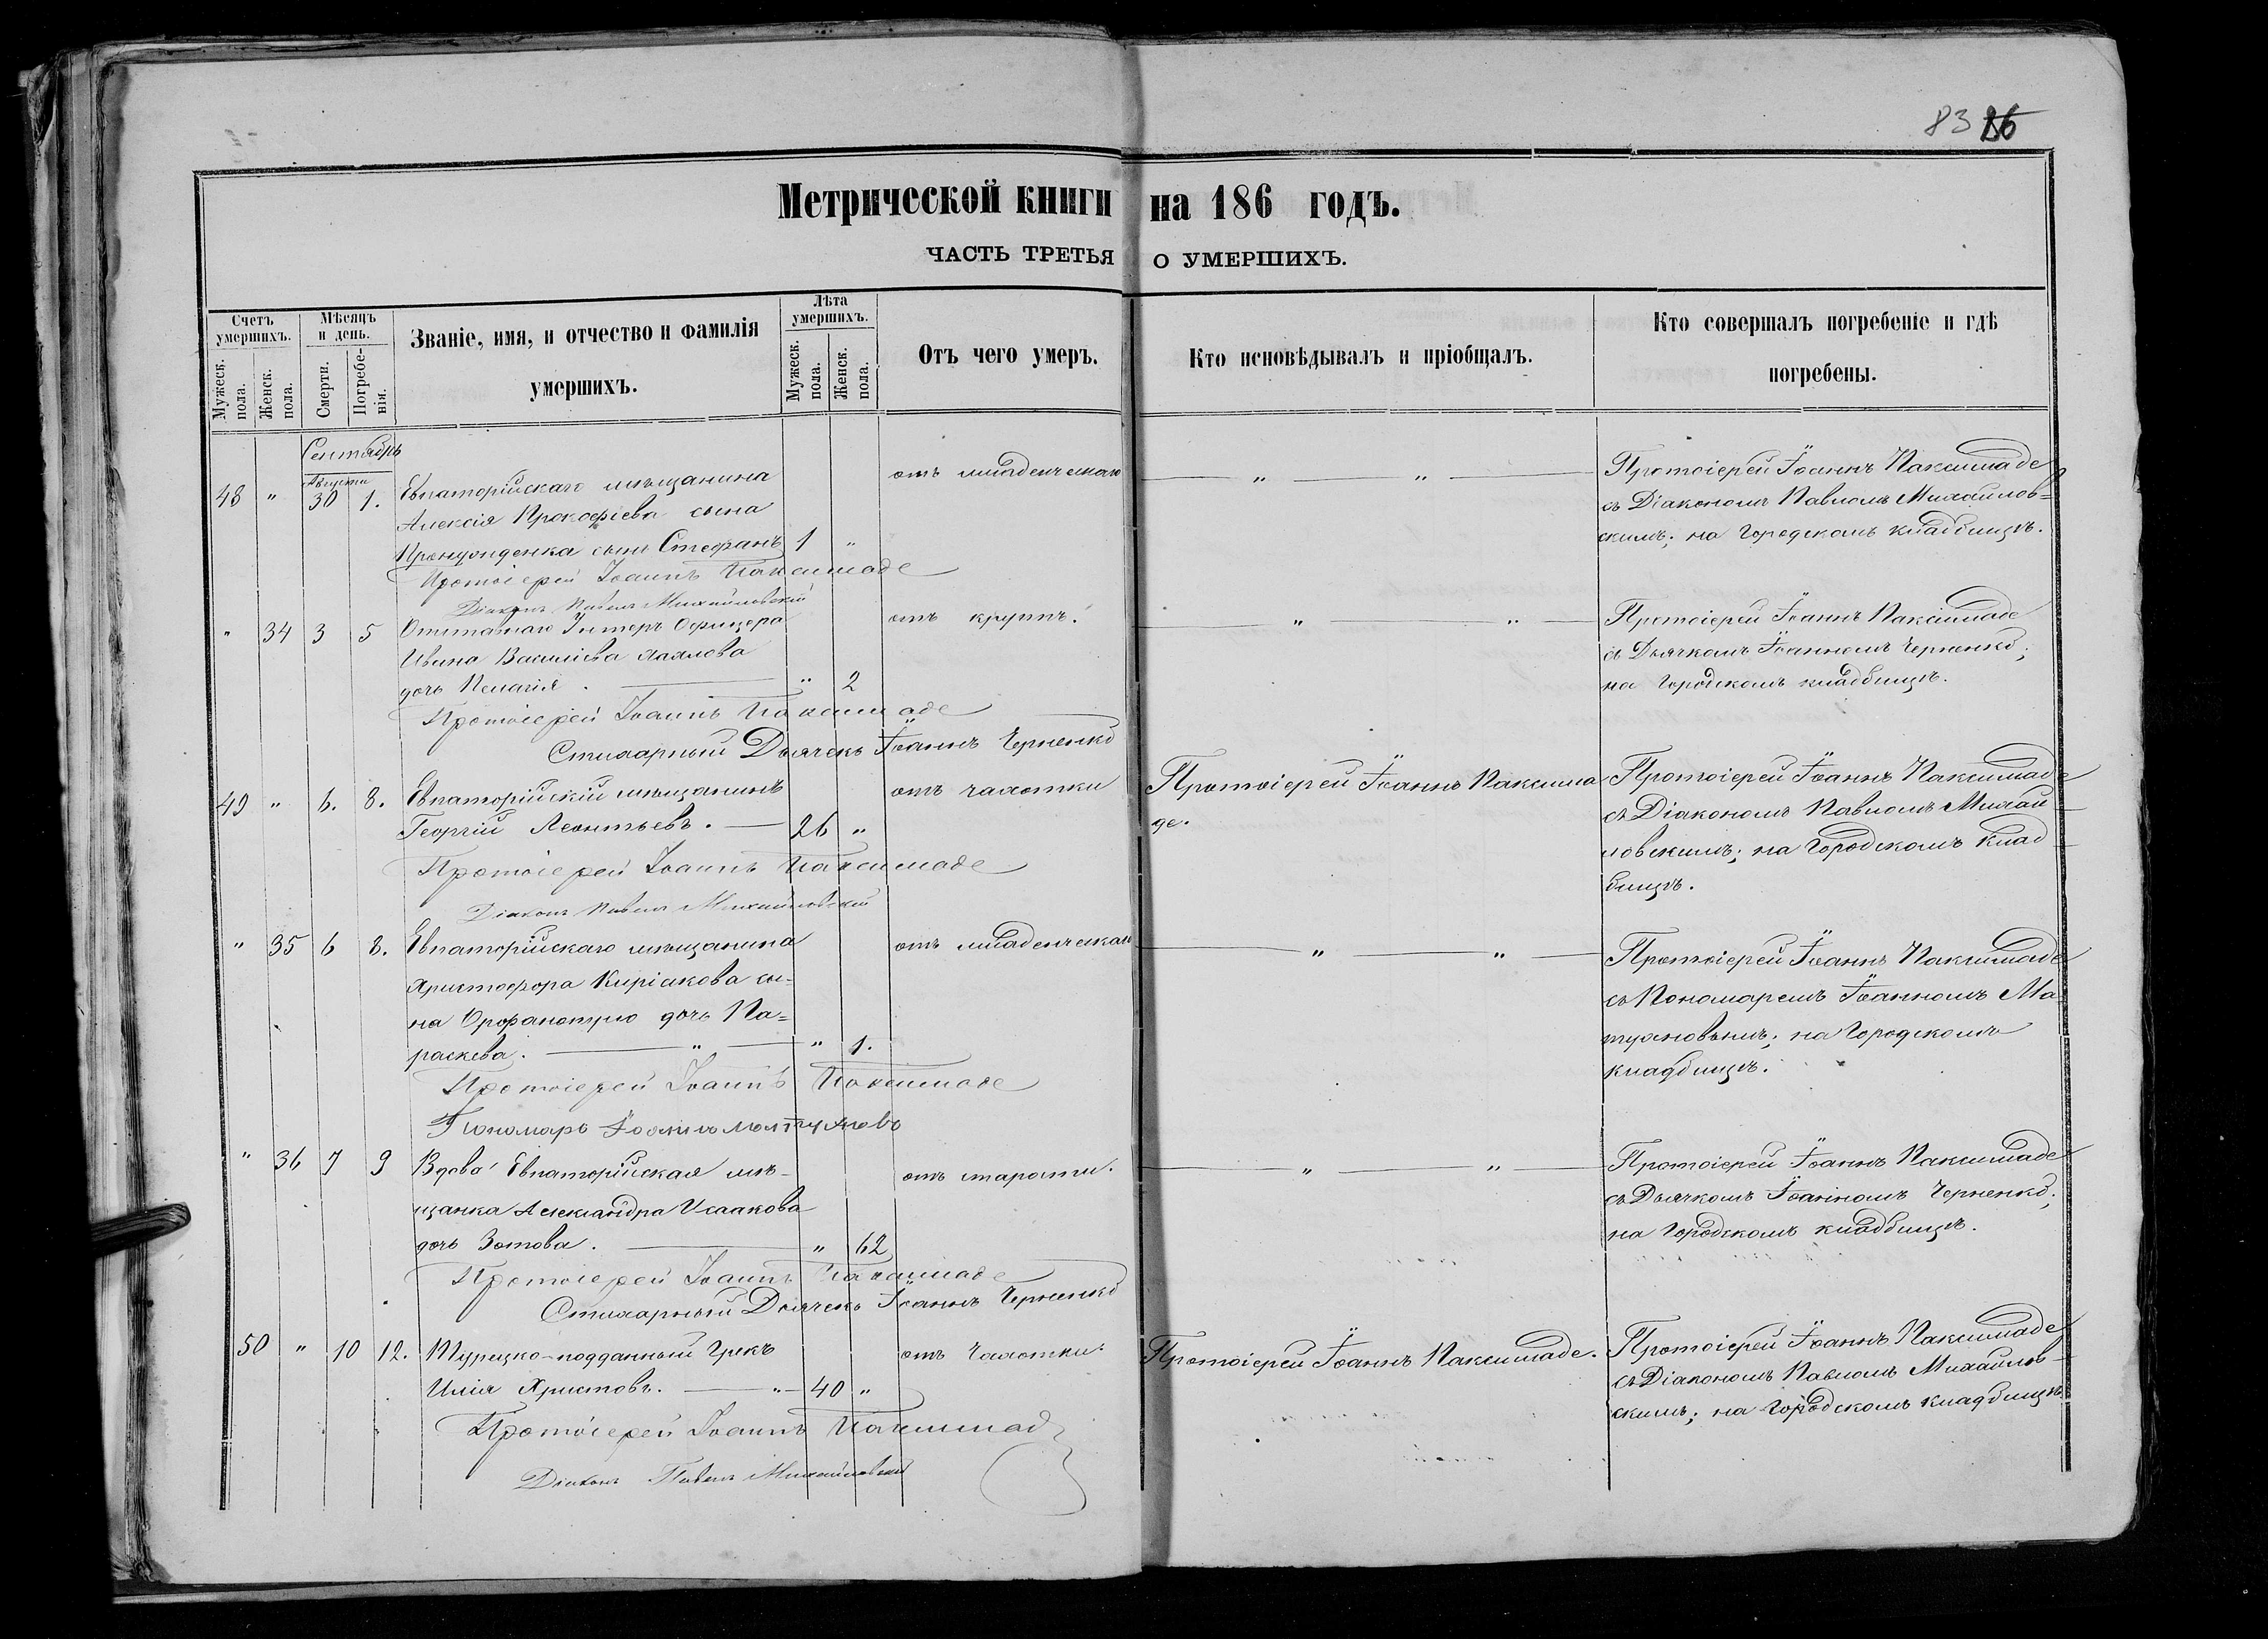 83 86
Метрической книги на 186 годъ.
ЧАСТЬ ТРЕТЬЯ О УМЕРШИХЪ.
Счетъ умершихъ.
Мужеск. пола.
Женск. пола.
Мѣсяцъ и день.
Смерти.
Погребенія.
Званіе, имя, и отчество и фамилія умершихъ.
Лѣта умершихъ.
Мужеск. пола.
Женск. пола.
Отъ чего умеръ.
Кто исповѣдывалъ и пріобщалъ.
Кто совершалъ погребеніе и гдѣ погребены.
Сентябрь
Августа
48 " 30 1. Евпаторійскаго мѣщанина отъ младенческаго " " Протоіерей Іоаннъ Паксимаде
Алексія Прокофіева сына съ Діакономъ Павломъ Михайлов=
сынъ Стефанъ 1 " скимъ; на Городскомъ кладбищѣ.
Протоіерей Іоаннъ Паксимаде
Діаконъ Павелъ Михайловскій
" 34 3 5 Унтеръ Офицера отъ крупъ. " " Протоіерей Іоаннъ Паксимаде
Ивана Васильева съ Дьячкомъ Іоанномъ Черненко;
дочь Пелагія. " 2 на Городскомъ кладбищѣ.
Протоіерей Іоаннъ Паксимаде
Стихарный Дьячекъ Іоаннъ Черненко
49 " 6. 8. Евпаторійскій мѣщанинъ отъ чахотки Протоіерей Іоаннъ Паксима Протоіерей Іоаннъ Паксимаде
Георгій Леонтьевъ. 26 " де. съ Діакономъ Павломъ Михай
ловскимъ; на Городскомъ клад
бищѣ.
Протоіерей Іоаннъ Паксимаде
Діаконъ Павелъ Михайловскій
" 35 6 8. Евпаторійскаго мѣщанина отъ младенческаго " " Протоіерей Іоаннъ Паксимаде
Христофора Киріакова сы= съ Пономаремъ Іоанномъ Ма
на дочь Па= туяновымъ; на Городскомъ
раскева. " " 1. кладбищѣ.
Протоіерей Іоаннъ Паксимаде
Пономарь
" 36 7 9 Вдова Евпаторійская мѣ= отъ старости. " " Протоіерей Іоаннъ Паксимаде
щанка Александра Исаакова съ Дьячкомъ Іоанномъ Черненко;
дочь Зотова. " 62 на Городскомъ кладбищѣ.
Протоіерей Іоаннъ Паксимаде
Стихарный Дьячекъ Іоаннъ Черненко
50 " 10 12. Турецко-подданный Грекъ отъ Чахотки. Протоіерей Іоаннъ Паксимаде. Протоіерей Іоаннъ Паксимаде
Илія Христовъ. " 40 " съ Діакономъ Павломъ Михайлов=
скимъ; на Городскомъ кладбищѣ
Протоіерей Іоаннъ Паксимаде
Діаконъ Павелъ Михайловскій